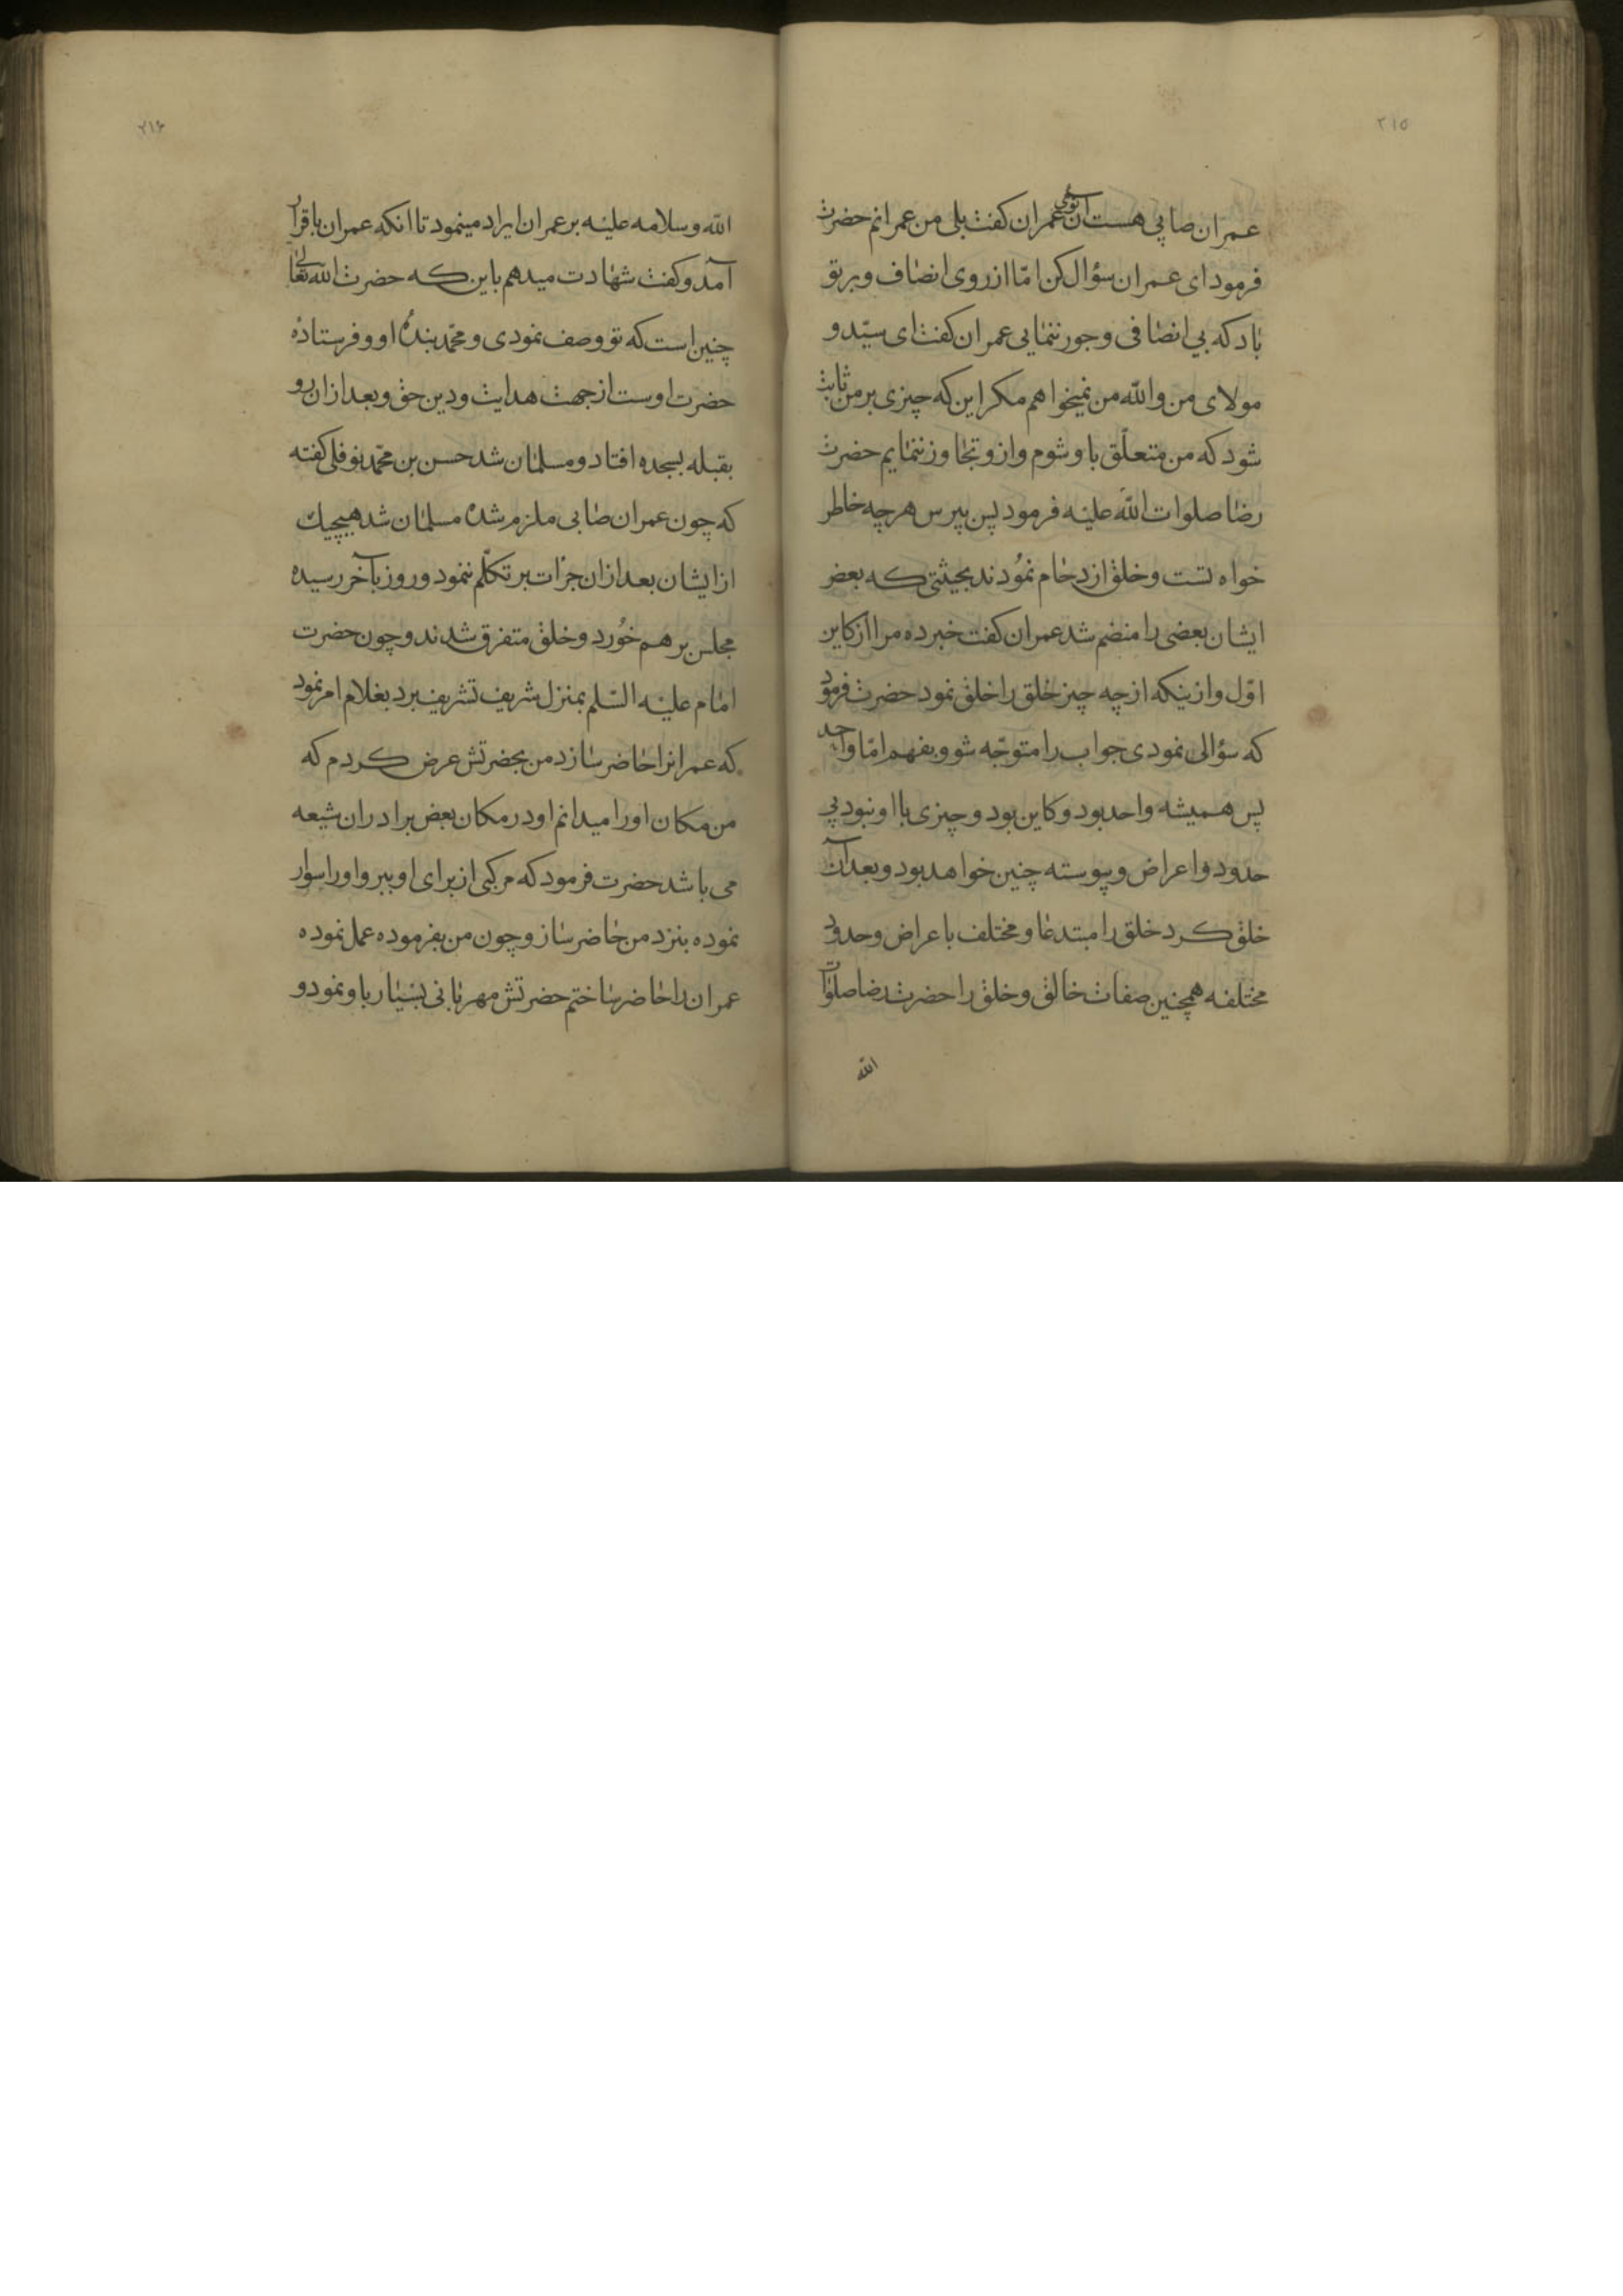 ۲۱۵
عمران صابی هست آن توئی عمران کفت بلی من عمرانم حضرت
فرمود ای عمران سؤال کن امّا از روی انصاف و بر تو
باد که بی انصافی و جور ننمایی عمران کفت ای سیّد و
مولای من والله من نمیخواهم مکر این که چیزی بر من ثابت
شود که من متعلّق باو شوم و ازو تجاوز ننمایم حضرت
رضا صلوات الله علیه فرمود پس بپرس هرچه خاطر
خواه تست و خلق ازدحام نمودند بحیثیتی که بعض
ایشان بعضی را منضم شد عمران کفت خبر ده مرا از کاین
اوّل و ازینکه از چه چیز خلق را خلق نمود حضرت فرمود
که سؤالی نمودی جواب را متوجّه شو و بفهم امّا واحد
پس همیشه واحد بود و کاین بود و چیزی با او نبود بی
حدود و اعراض و پیوسته چنین خواهد بود و بعد آن
خلق کرد خلق را مبتدعا و مختلف باعراض و حدود
مختلفه همچنین صفات خالق و خلق را حضرت رضا صلوات
الله
۲۱۶
الله و سلامه علیه بر عمران ایراد مینمود تا انکه عمران باقرار
آمد و کفت شهادت میدهم باین که حضرت الله تعالی
چنین است که تو وصف نمودی و محمّد بنده او و فرستاده
حضرت اوست از جهت هدایت و دین حق و بعد ازان رو
بقبله بسجده افتاد و مسلمان شد حسن بن محمّد نوفلی کفته
که چون عمران صابی ملزم شده مسلمان شد هیچیک
از ایشان بعد ازان جرات بر تکلّم ننمود و روز بآخر رسیده
مجلس بر هم خورد و خلق متفرق شدند و چون حضرت
امام علیه السّلم بمنزل شریف تشریف برد بغلام امر نمود
که عمرانرا حاضر سازد من بحضرتش عرض کردم که
من مکان او را میدانم او در مکان بعض برادران شیعه
می باشد حضرت فرمود که مرکبی از برای او ببر و او را سوار
نموده بنزد من حاضر ساز و چون من بفرموده عمل نموده
عمران را حاضر ساختم حضرتش مهربانی بسیار باو نمود و